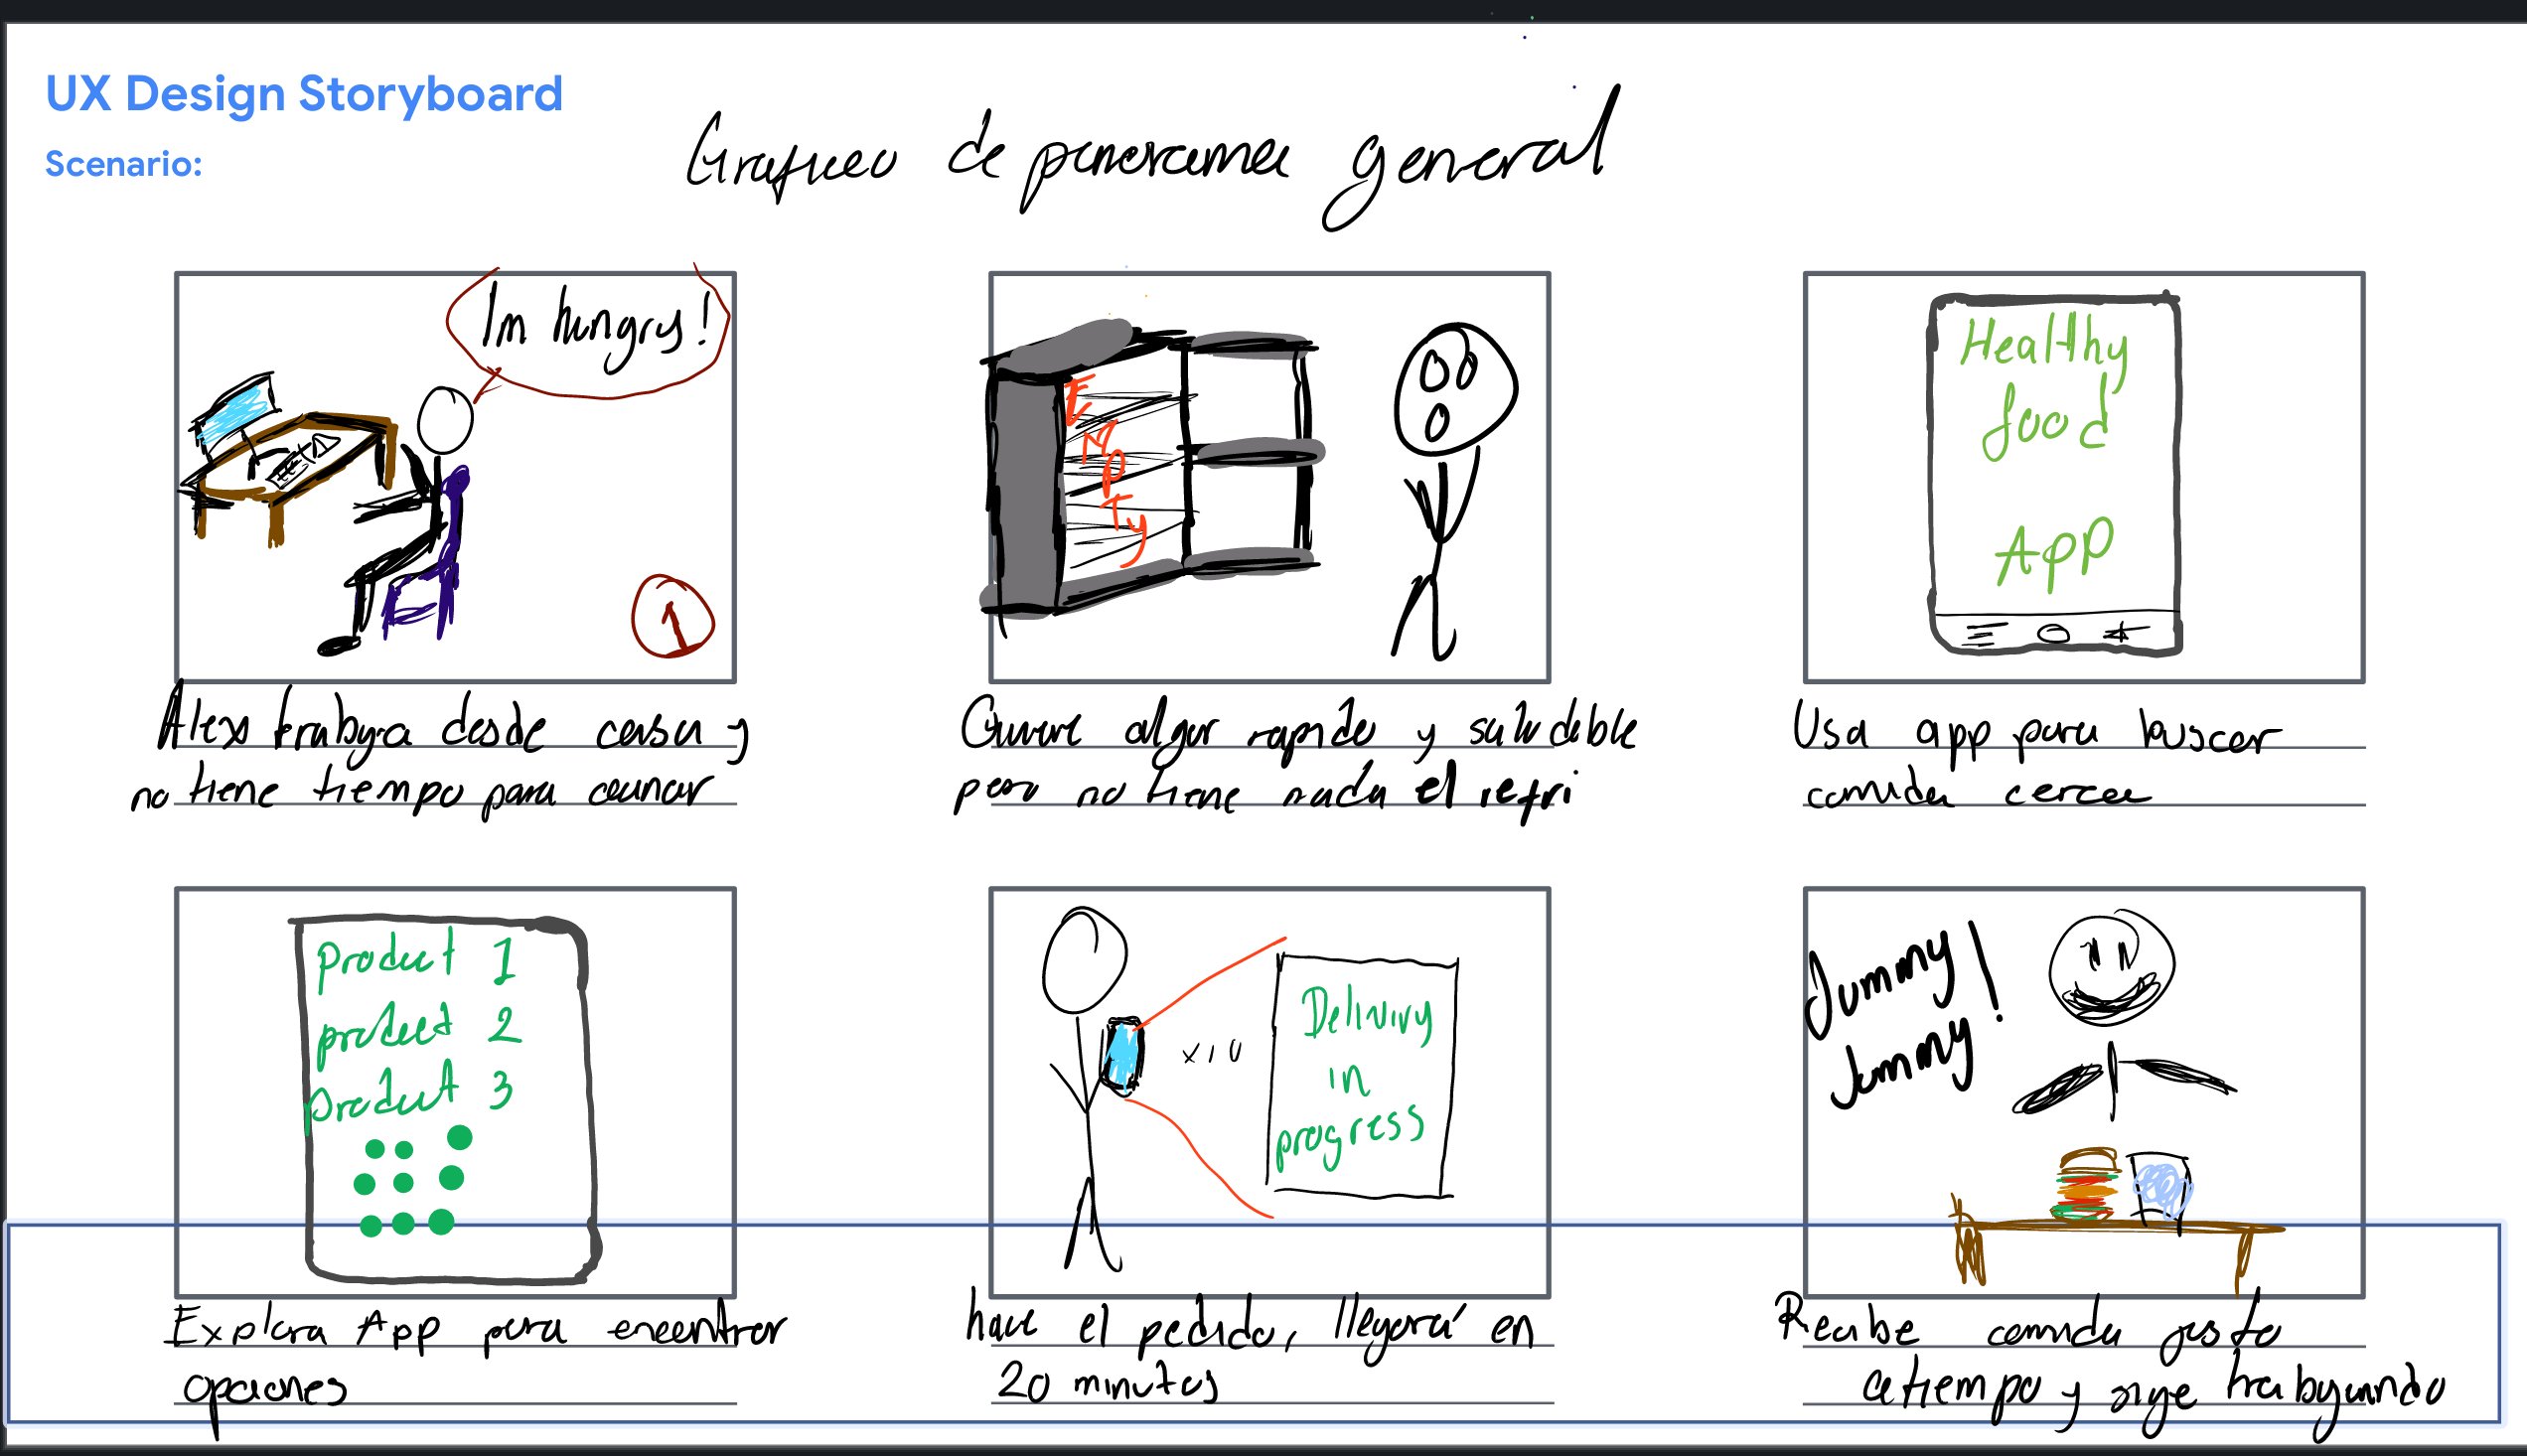 UX Design Storyboard
Scenario:
Grafico de panorama general
Im hungry!
1
EMPTy
Healthy
food
App
Alexs trabaja desde casa y
no tiene tiempo para cocinar
Quiere algo rapido y saludable
pero no tiene nada el refri
Usa app para buscar
comida cerca
Product 1
product 2
product 3
x10
Deliviry
in
progress
Jummy!
Jummy
Explora App para encontrar
opciones
hace el pedido, llegará en
20 minutos
Recibe comida justo
a tiempo y sigue trabajando